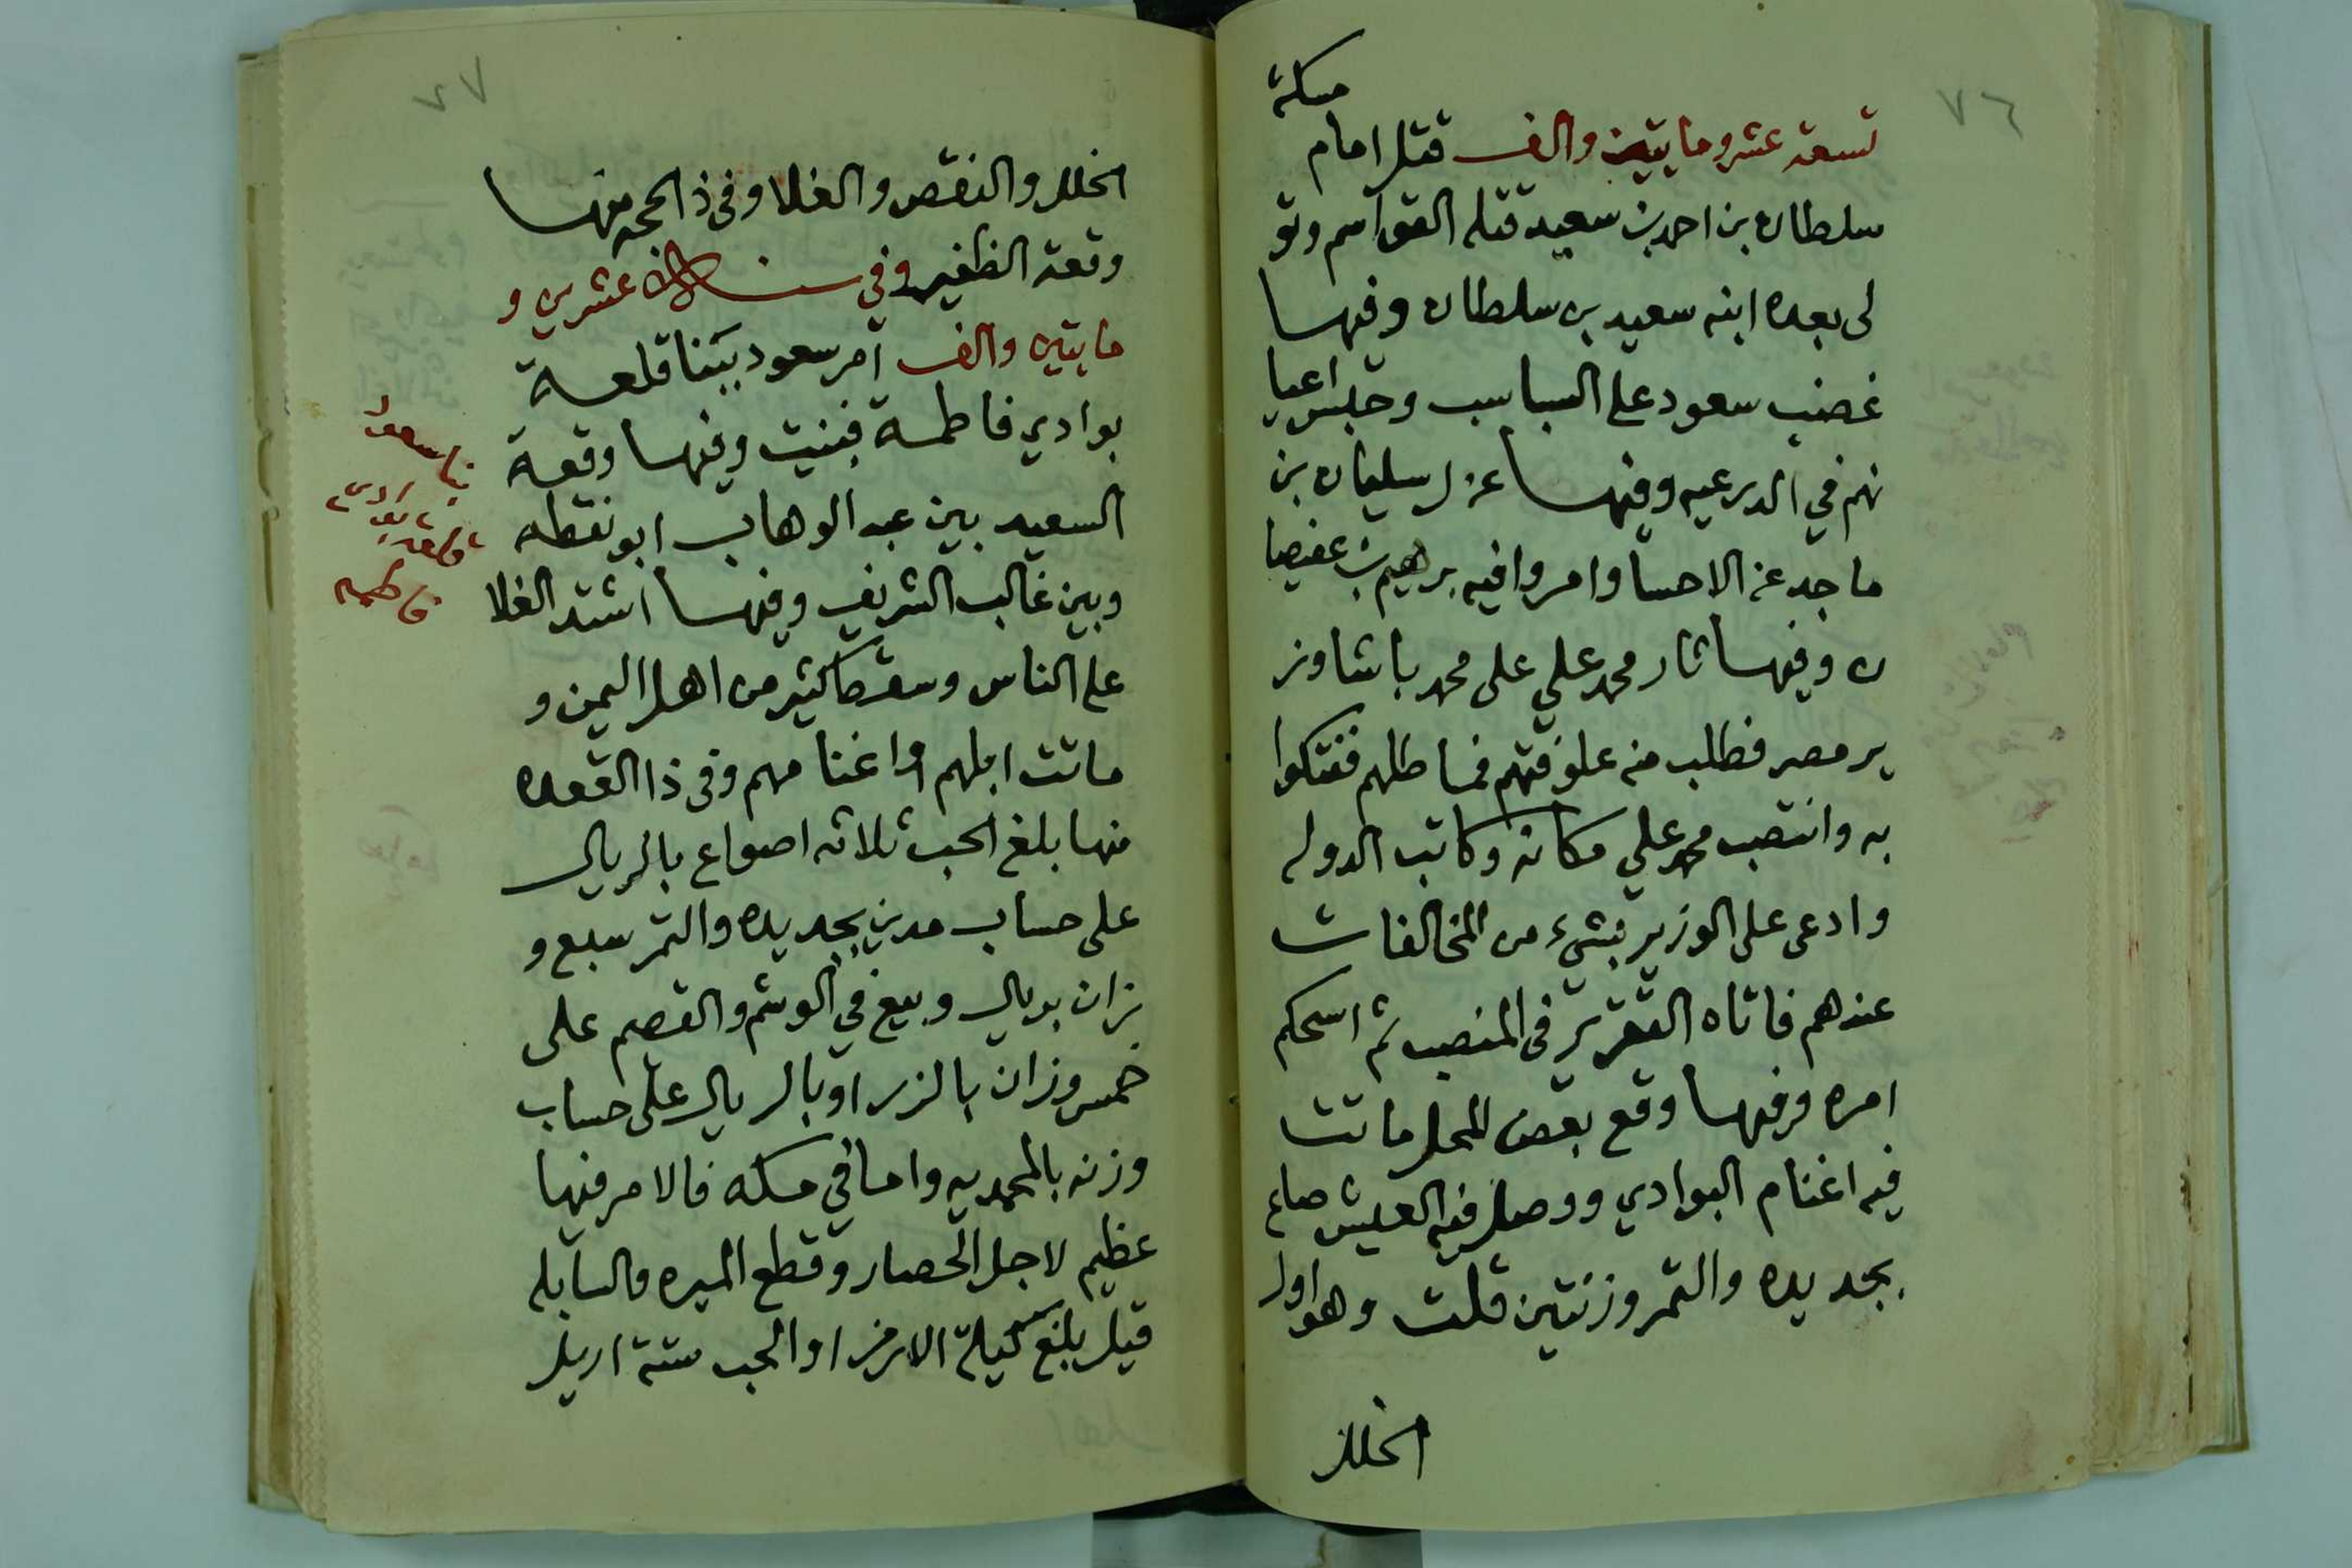 ٧٦
مسكة
تسعة عشر ومايتين والف قتل امام
سلطان بن احمد بن سعيد قتله القواسم وتو
لى بعده ابنه سعيد بن سلطان وفيها
غضب سعود على السباسب وحبس اعيا
نهم في الدرعيه وفيها عزل سليمان بن
ماجد عن الاحسا وامروا فيه برهيم بن عفيصا
ن وفيها ثار محمد علي على محمد باشا وز
ير مصر فطلب منه علوفتهم فماطلهم ففتكوا
به وانتصب محمد علي مكانه وكاتب الدوله
وادعى على الوزير بشيء من المخالفات
عندهم فاتاه التقرير في المنصب ثم استحكم
امره وفيها وقع بعض المحل ماتت
فيه اغنام البوادي ووصل فيه العيش صاع
بجديده والتمر وزنتين قلت وهو اول
الخلل
٧٧
الخلل والنقص والغلا وفي ذالحجه منها
وقعة الظفير وفي سنة عشرين و
مايتين والف امر سعود ببنا قلعة
بوادي فاطمة فبنيت وفيها وقعة
السعيد بين عبد الوهاب ابو نقطه
وبين غالب الشريف وفيها اشتد الغلا
على الناس وسقط كثير من اهل اليمن و
ماتت ابلهم واغنامهم وفي ذا القعده
منها بلغ الحب ثلاثه اصواع بالريال
على حساب مدين بجديده والتمر سبع و
زان بريال وبيع في الوشم والقصم على
خمس وزان بالزر او بالريال على حساب
وزنه بالمحمديه واما في مكه فالامر فيها
عظيم لاجل الحصار وقطع الميره والسابله
قيل بلغ كيلة الارز او الحب ستة اريل
بنا سعود
قلعة بوادي
فاطمه